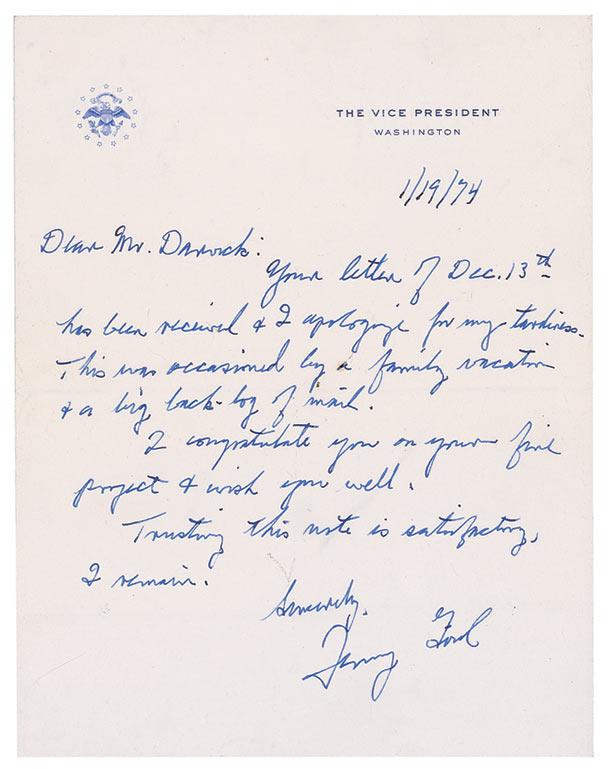 THE VICE PRESIDENT
WASHINGTON
1/19/74
Dear Mr. Darvick:
Your letter of Dec. 13th
has been received & I apologize for my tardiness.
This was occasioned by a family vacation
& a big back-log of mail.
I congratulate you on your fine
project & wish you well.
Trusting this note is satisfactory,
I remain.
Sincerely,
Jerry Ford